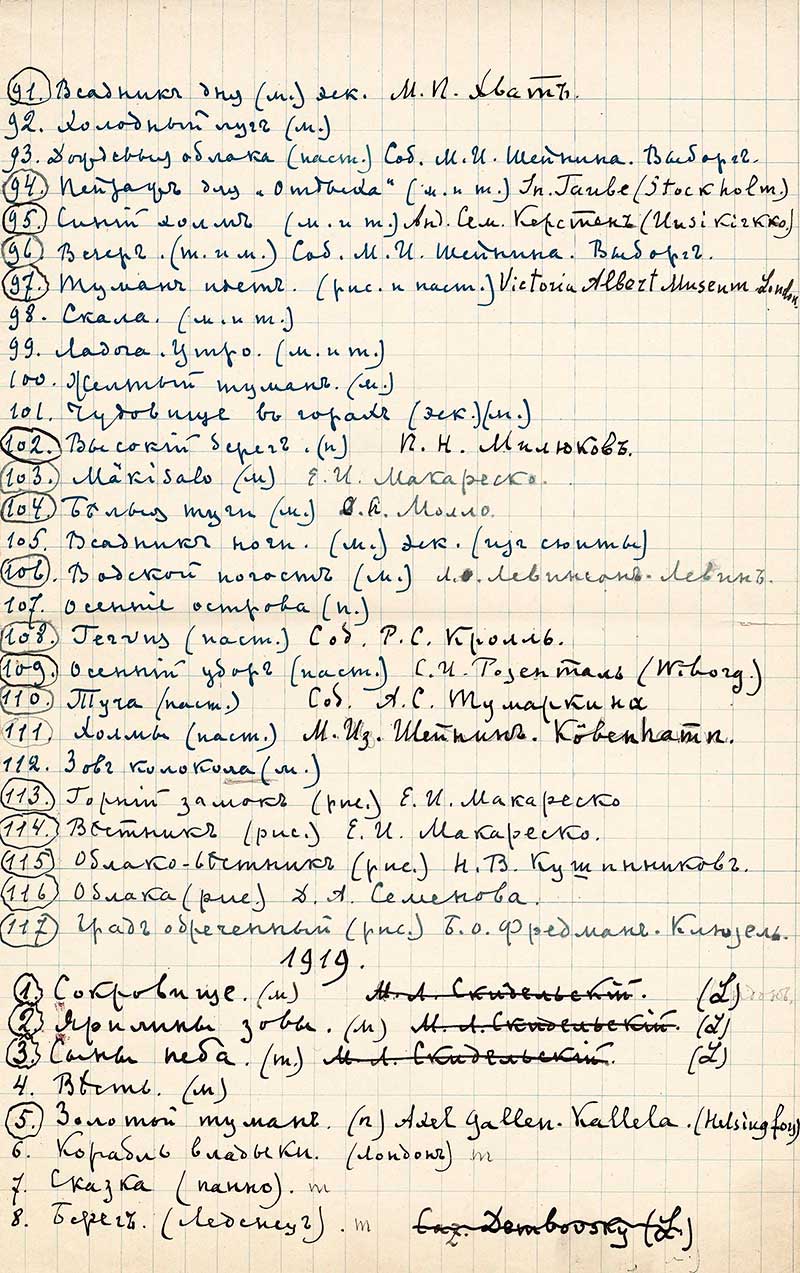 91. Всадникъ дня (м.) эск. М. П. Хватъ.
92. Холодный лугъ (м.)
93. Дождевыя облака (паст.) Соб. М. И. Шейнина. Выборгъ.
94. Пейзажъ для „Отдыха“ (м. и т.) In. Taube (Stockholm.)
95. Синій холмъ (м. и т.) Анд. Сем. Керстенъ (Uusikirkko.)
96 Вечеръ. (т. и м.) Соб. М. И. Шейнина. Выборгъ.
97. Туманъ поетъ. (рис. и паст.) Victoria Albert Museum London.
98. Скала. (м. и т.)
99. Ладога. Утро. (м. и т.)
100. Желтый туманъ. (м.)
101. Чудовище въ горахъ (эск.)(м.)
102. Высокій берегъ. (п) П. Н. Милюковъ.
103. Mäkisalo (м) Е. И. Макареско.
104. Бѣлыя тучи (м.) А. Молло.
105. Всадникъ ночи. (м.) эск. (изъ сюиты)
106. Водской погостъ (м.) Левинсонъ-Левинъ.
107. Осенніе острова (п.)
108. (паст.) Соб. Р. С. Кролль.
109. Осенній уборъ (паст.) С. И. Розенталь (Wiborg.)
110. Туча (паст.) Соб. А. С. Тумаркина
111 Холмы (паст.) М. Из. Шейнинъ. Köbenhamn.
112. Зовъ колокола (м.)
113. Горній замокъ (рис.) Е. И. Макареско
114. Вѣстникъ (рис.) Е. И. Макареско.
115 Облако-вѣстникъ (рис.) Н. В. Кушинниковъ.
116 Облака (рис) Д. А. Семенова.
117 Градъ обреченный (рис.) Б. О. Фредманъ-Клюзель.
1919.
1. Сокровище. (м) М. Л. Скидельскій. (L)
2. Ярилины зовы. (м) М. Л. Скидельскій. (L)
3. Сыны неба. (т.) М. Л. Скидельскій. (L)
4. Вѣсть. (м)
5. Золотой туманъ. (п) Axel Gallen-Kallela. (Helsingfors)
6. Корабль владыки. (Лондонъ) т
7. Сказка (панно). т
8. Берегъ. (Леденецъ). т Dembovsky (L.)